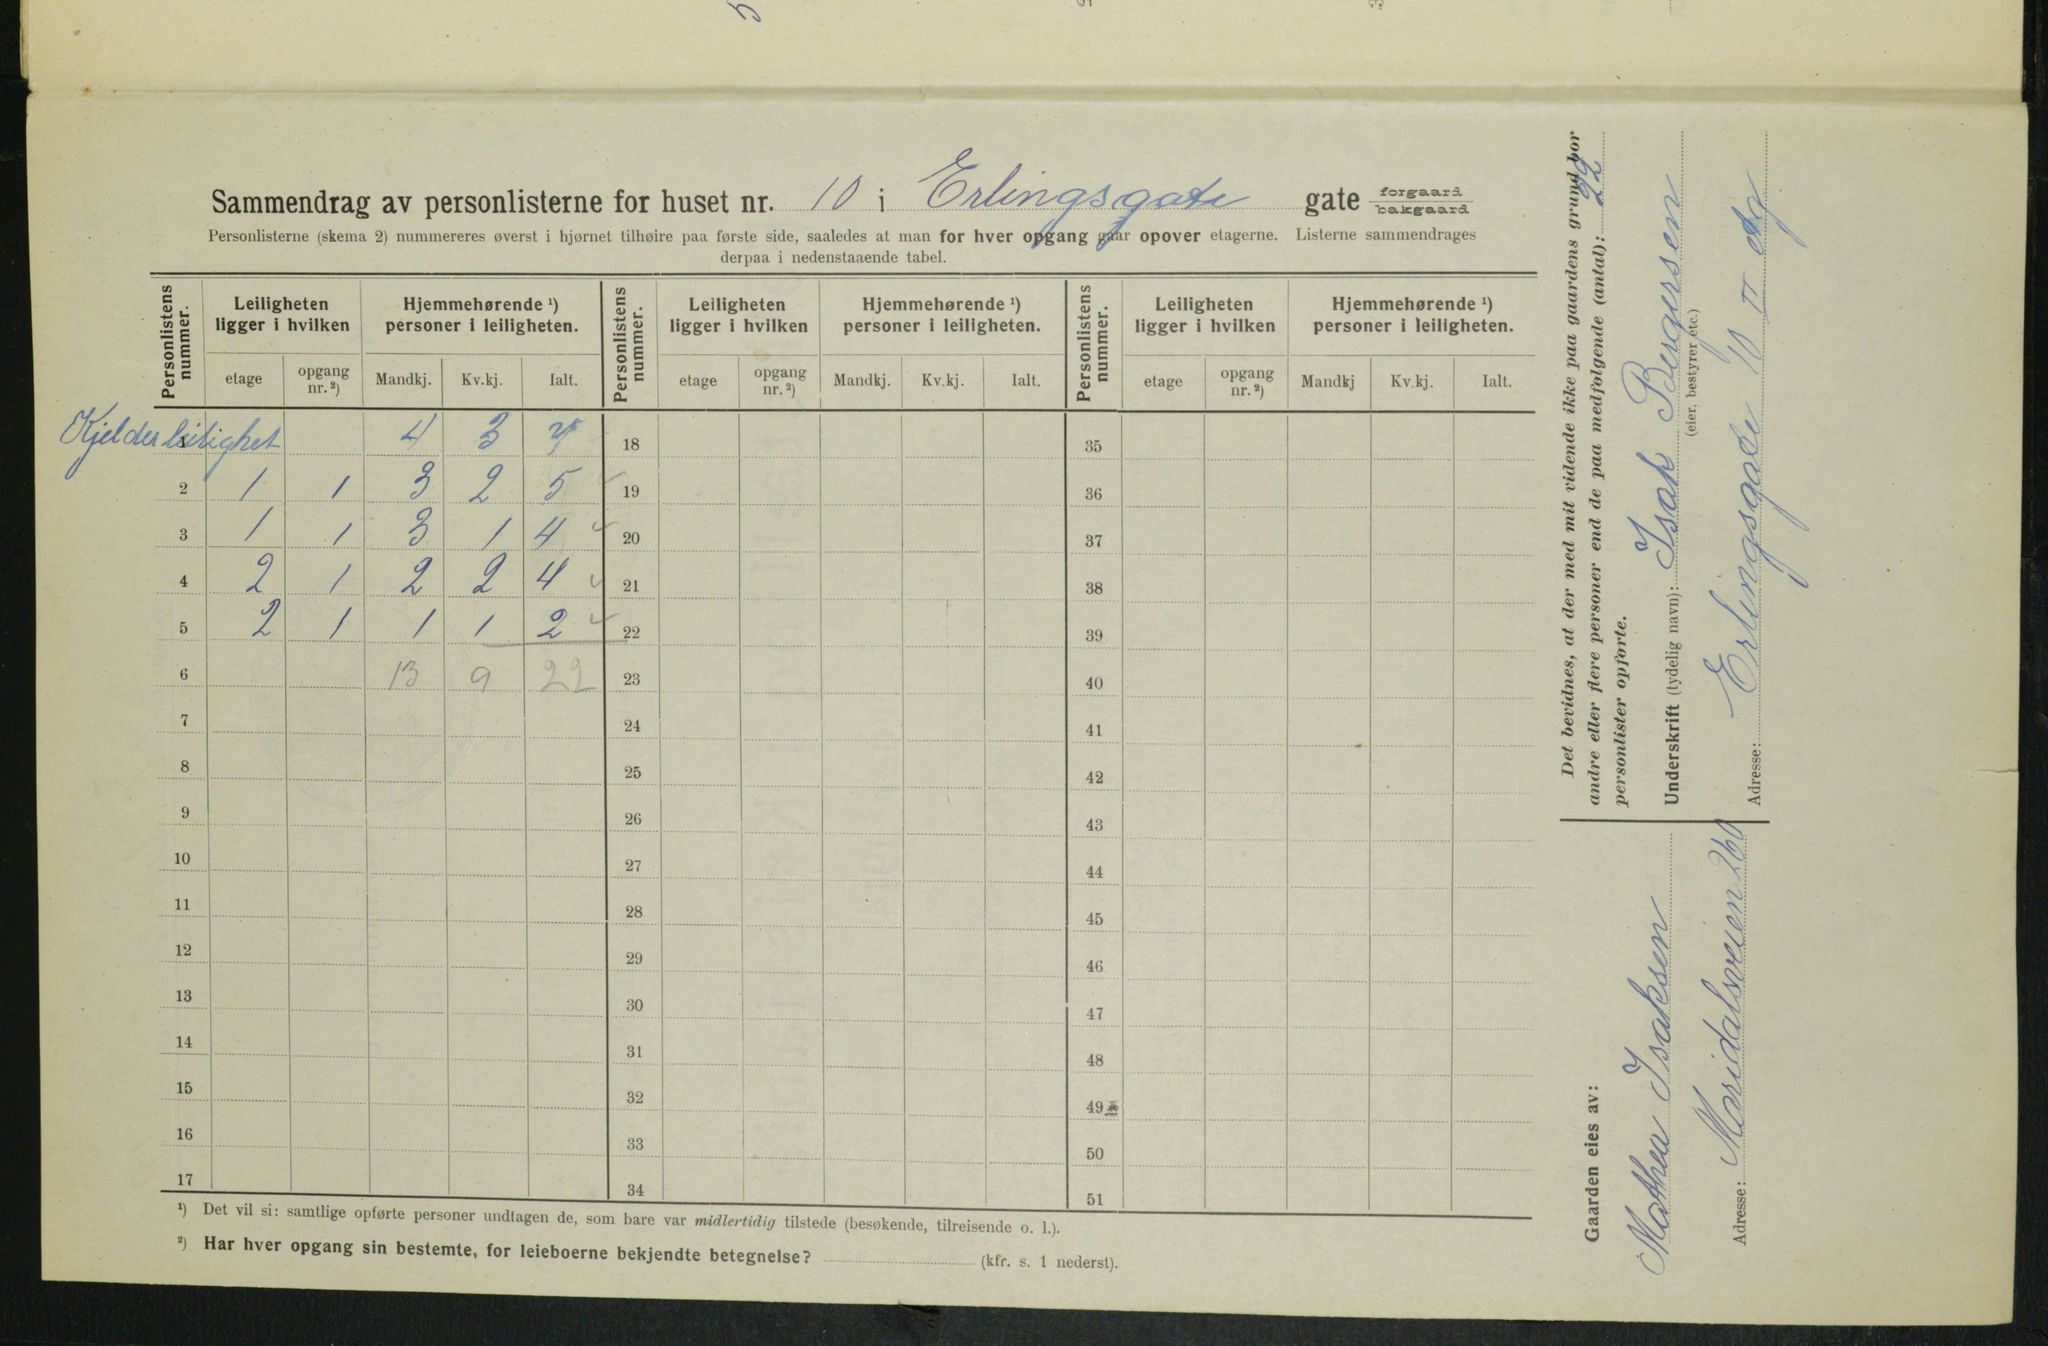 Sammendrag av personlisterne for huset nr. 10 i Erlingsgate gate forgaard bakgaard
Personlisterne (skema 2) nummereres øverst i hjørnet tilhøire paa første side, saaledes at man for hver opgang gaar opover etagerne. Listerne sammendrages
derpaa i nedenstaaende tabel.
Personlistens nummer. Leiligheten ligger i hvilken Hjemmehørende ¹) personer i leiligheten. Personlistens nummer. Leiligheten ligger i hvilken Hjemmehørende ¹) personer i leiligheten. Personlistens nummer. Leiligheten ligger i hvilken Hjemmehørende ¹) personer i leiligheten.
etage opgang nr. ²) Mandkj. Kv.kj. Ialt. etage opgang nr. ²) Mandkj. Kv.kj. Ialt. etage opgang nr. ²) Mandkj Kv.kj. Ialt.
1 Kjelderleilighet 4 3 7 18 35
2 1 1 3 2 5 19 36
3 1 1 3 1 4 20 37
4 2 1 2 2 4 21 38
5 2 1 1 1 2 22 39
6 13 9 22 23 40
7 24 41
8 25 42
9 26 43
10 27 44
11 28 45
12 29 46
13 30 47
14 31 48
15 32 49
16 33 50
17 34 51
¹) Det vil si: samtlige opførte personer undtagen de, som bare var midlertidig tilstede (besøkende, tilreisende o. l.).
²) Har hver opgang sin bestemte, for leieboerne bekjendte betegnelse? (kfr. s. 1 nederst).
Det bevidnes, at der med mit vidende ikke paa gaardens grund bor
andre eller flere personer end de paa medfølgende (antal): 22
personlister opførte.
Underskrift (tydelig navn): Isak Bergersen
(eier, bestyrer etc.)
Adresse: Erlingsgate 10 II etg
Gaarden eies av:
Mathea Isaksen
Adresse: Maridalsveien 260